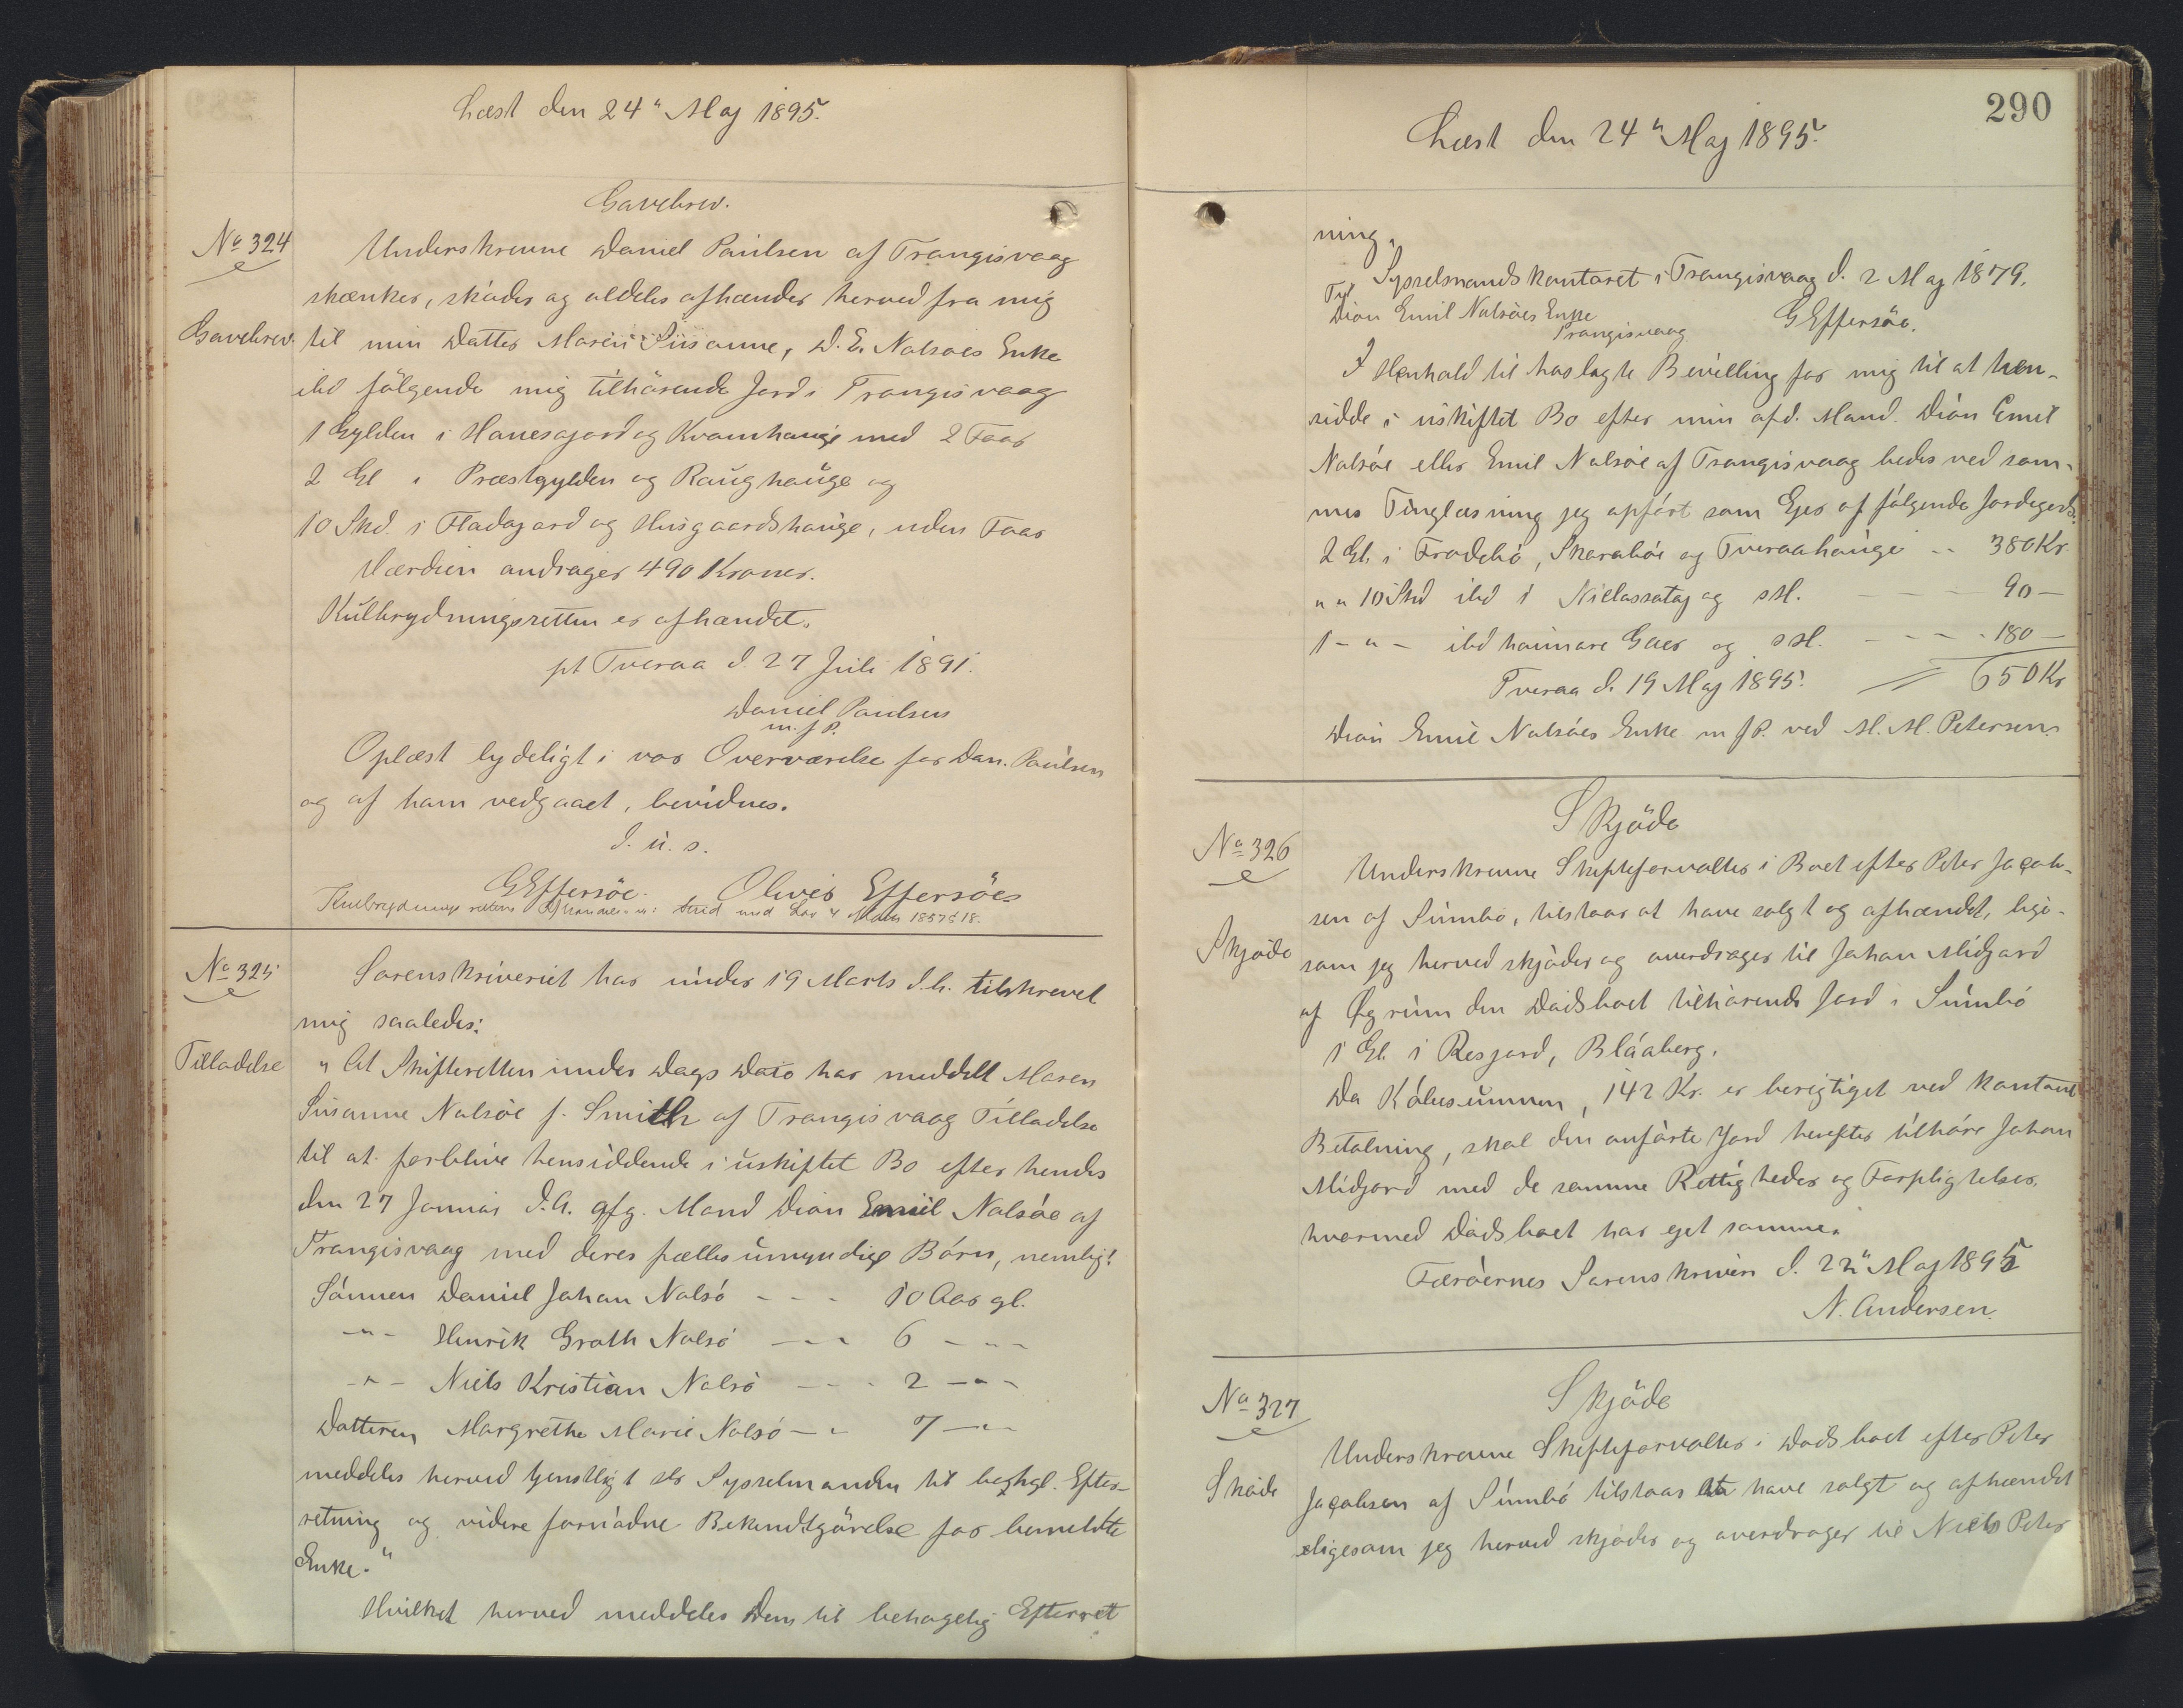 Læst den 24" Maj 1895.
Gavebrev.
No 324
Underskrevne Daniel Paulsen af Trangisvaag
skænker, skøder og aldeles afhænder herved fra mig
Gavebrev. til min Datter Maren Susanne, D. E. Nalsøes Enke
ibd følgende mig tilhørende Jord i Trangisvaag
1 Gylden i Hanesagard og Kvamhauge med 2 Faar
2 Gl i Præstgylden og Raughauge og
10 Skd. i Fladagard og Husgaardshauge, uden Faar
Værdien andrager 490 Kroner.
Kulbrydningsretten er afhændet.
pt Tveraa d. 27 Juli 1891.
Daniel Paulsen
m. f P.
Oplæst lydeligt i vor Overværelse for Dan. Paulsen
og af ham vedgaaet, bevidnes.
D. u. s.
GEffersøe. Oliver Effersøe
Kulbrydnings rettens Afhændelse strid mod Lov 4 Marts 1857 § 18.
No 325
Sorenskriveriet har under 19 Marts d. A. tilskrevet
mig saaledes:
Tilladelse
„At Skifteretten under Dags Dato har meddelt Maren
Susanne Nalsøe f. Smith af Trangisvaag Tilladelse
til at forblive hensiddende i uskiftet Bo efter hendes
den 27 Januar d. A. afg. Mand Dion Emil Nalsøe af
Trangisvaag med deres fælles umyndige Børn, nemlig:
Sønnen Daniel Johan Nalsø - - - 10 Aar gl.
-"- Henrik Groth Nalsø - - - 6 -"-
-"- Niels Kristian Nalsø - - - 2 -"-
Datteren Margrethe Marie Nalsø - - 7 -"-
meddeles herved tjenstligt Hr Sysselmanden til beghgl. Efter-
retning og videre fornødne Bekendtgørelse for bemeldte
Enke."
Hvilket herved meddeles Dem til behagelig Efterret
290
Læst den 24" Maj 1895.
ning.
Sysselmandskontoret i Trangisvaag d. 2 Maj 1879.
Til
Dion Emil Nalsøes Enke GEffersøe.
Trangisvaag
I Henhold til forelagte Bevilling for mig til at hen-
sidde i uskiftet Bo efter min afd. Mand Dion Emil
Nalsøe eller Emil Nalsøe af Trangisvaag bedes ved sam-
mes Tinglæsning jeg opført som Ejer af følgende Jordegods.
2 Gl. i Frodebø, Skarabøe og Tveraahauge - - 380 Kr
" " 10 Skd ibd i Niclassataj og sst. - - 90 -
1 - " - ibd haimare Gaer og sst. - - - 180 -
Tveraa d. 19 Maj 1895. 650 Kr
Dion Emil Nalsøes Enke m f P. ved M. M. Petersen.
Skjøde
No 326
Underskrevne Skifteforvalter i Boet efter Peter Jacob-
sen af Sumbø, tilstaar at have solgt og afhændet, lige-
Skjøde
som jeg herved skjøder og overdrager til Johan Midjord
af Øgrum den Dødsboet tilhørende Jord i Sumbø
1 Gl. i Resjord, Bláaberg.
Da Købesummen, 142 Kr. er berigtiget ved kontant
Betalning, skal den anførte Jord herefter tilhøre Johan
Midjord med de samme Rettigheder og Forpligtelser.
hvormed Dødsboet har ejet samme.
Færøernes Sorenskriveri d. 22" Maj 1895
N. Andersen.
Skjøde
No 327
Underskrevne Skifteforvalter i Dødsboet efter Peter
Skøde
Jacobsen af Sumbø tilstaar at have solgt og afhændet
ligesom jeg herved skjøder og overdrager til Niels Peter